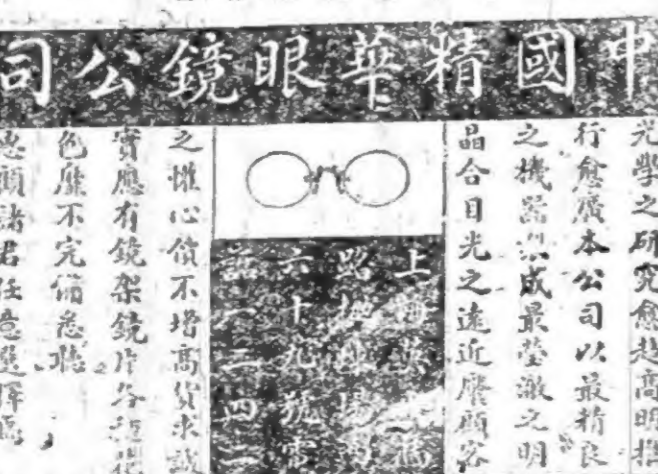 中國精華眼鏡公司
光學之研究愈趨高明推
行愈廣本公司以最精良
之機器製成最瑩澈之明
晶合目光之遠近廢顧客
上海
路
六十九號電
話一二四二
之惟心價不增高貨求誠
實應有鏡架鏡片各種
色靡不完備悉聽
惠顧諸君任意選擇